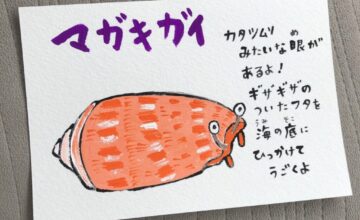 マガキガイ
カタツムリ
みたいな眼が
め
あるよ！
ギザギザの
ついたフタを
うみ そこ
海の底に
ひっかけて
うごくよ